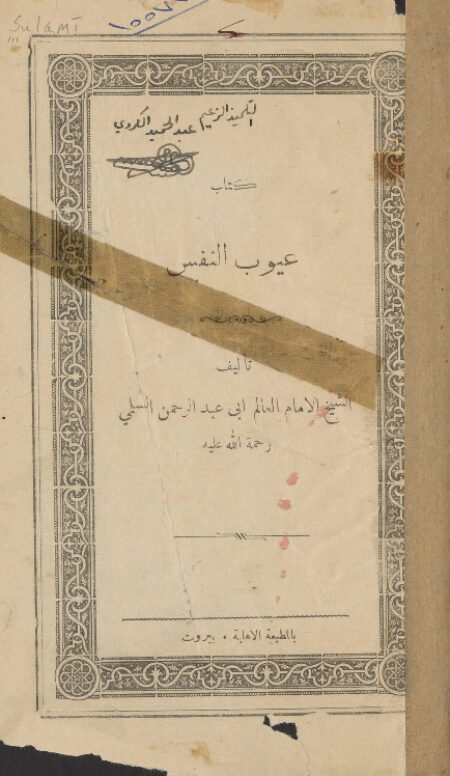 Sulamī
التلميذ الزعيم
عبد الحميد الكردي
كتاب
عيوب النفس
تأليف
الشيخ الامام العالم ابى عبد الرحمن السلمي
رحمة الله عليه
بالمطبعة الاهلية ٠ بيروت